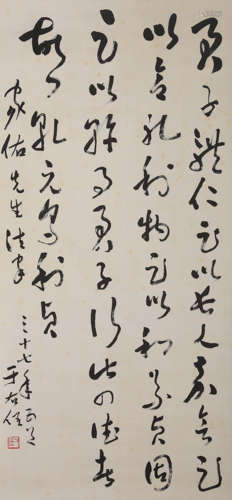 君子體仁足以長人嘉會足
以合禮利物足以和義貞固
足以幹事君子行此四德者
故曰乾元亨利貞
佑先生法家
三十七年
于右任